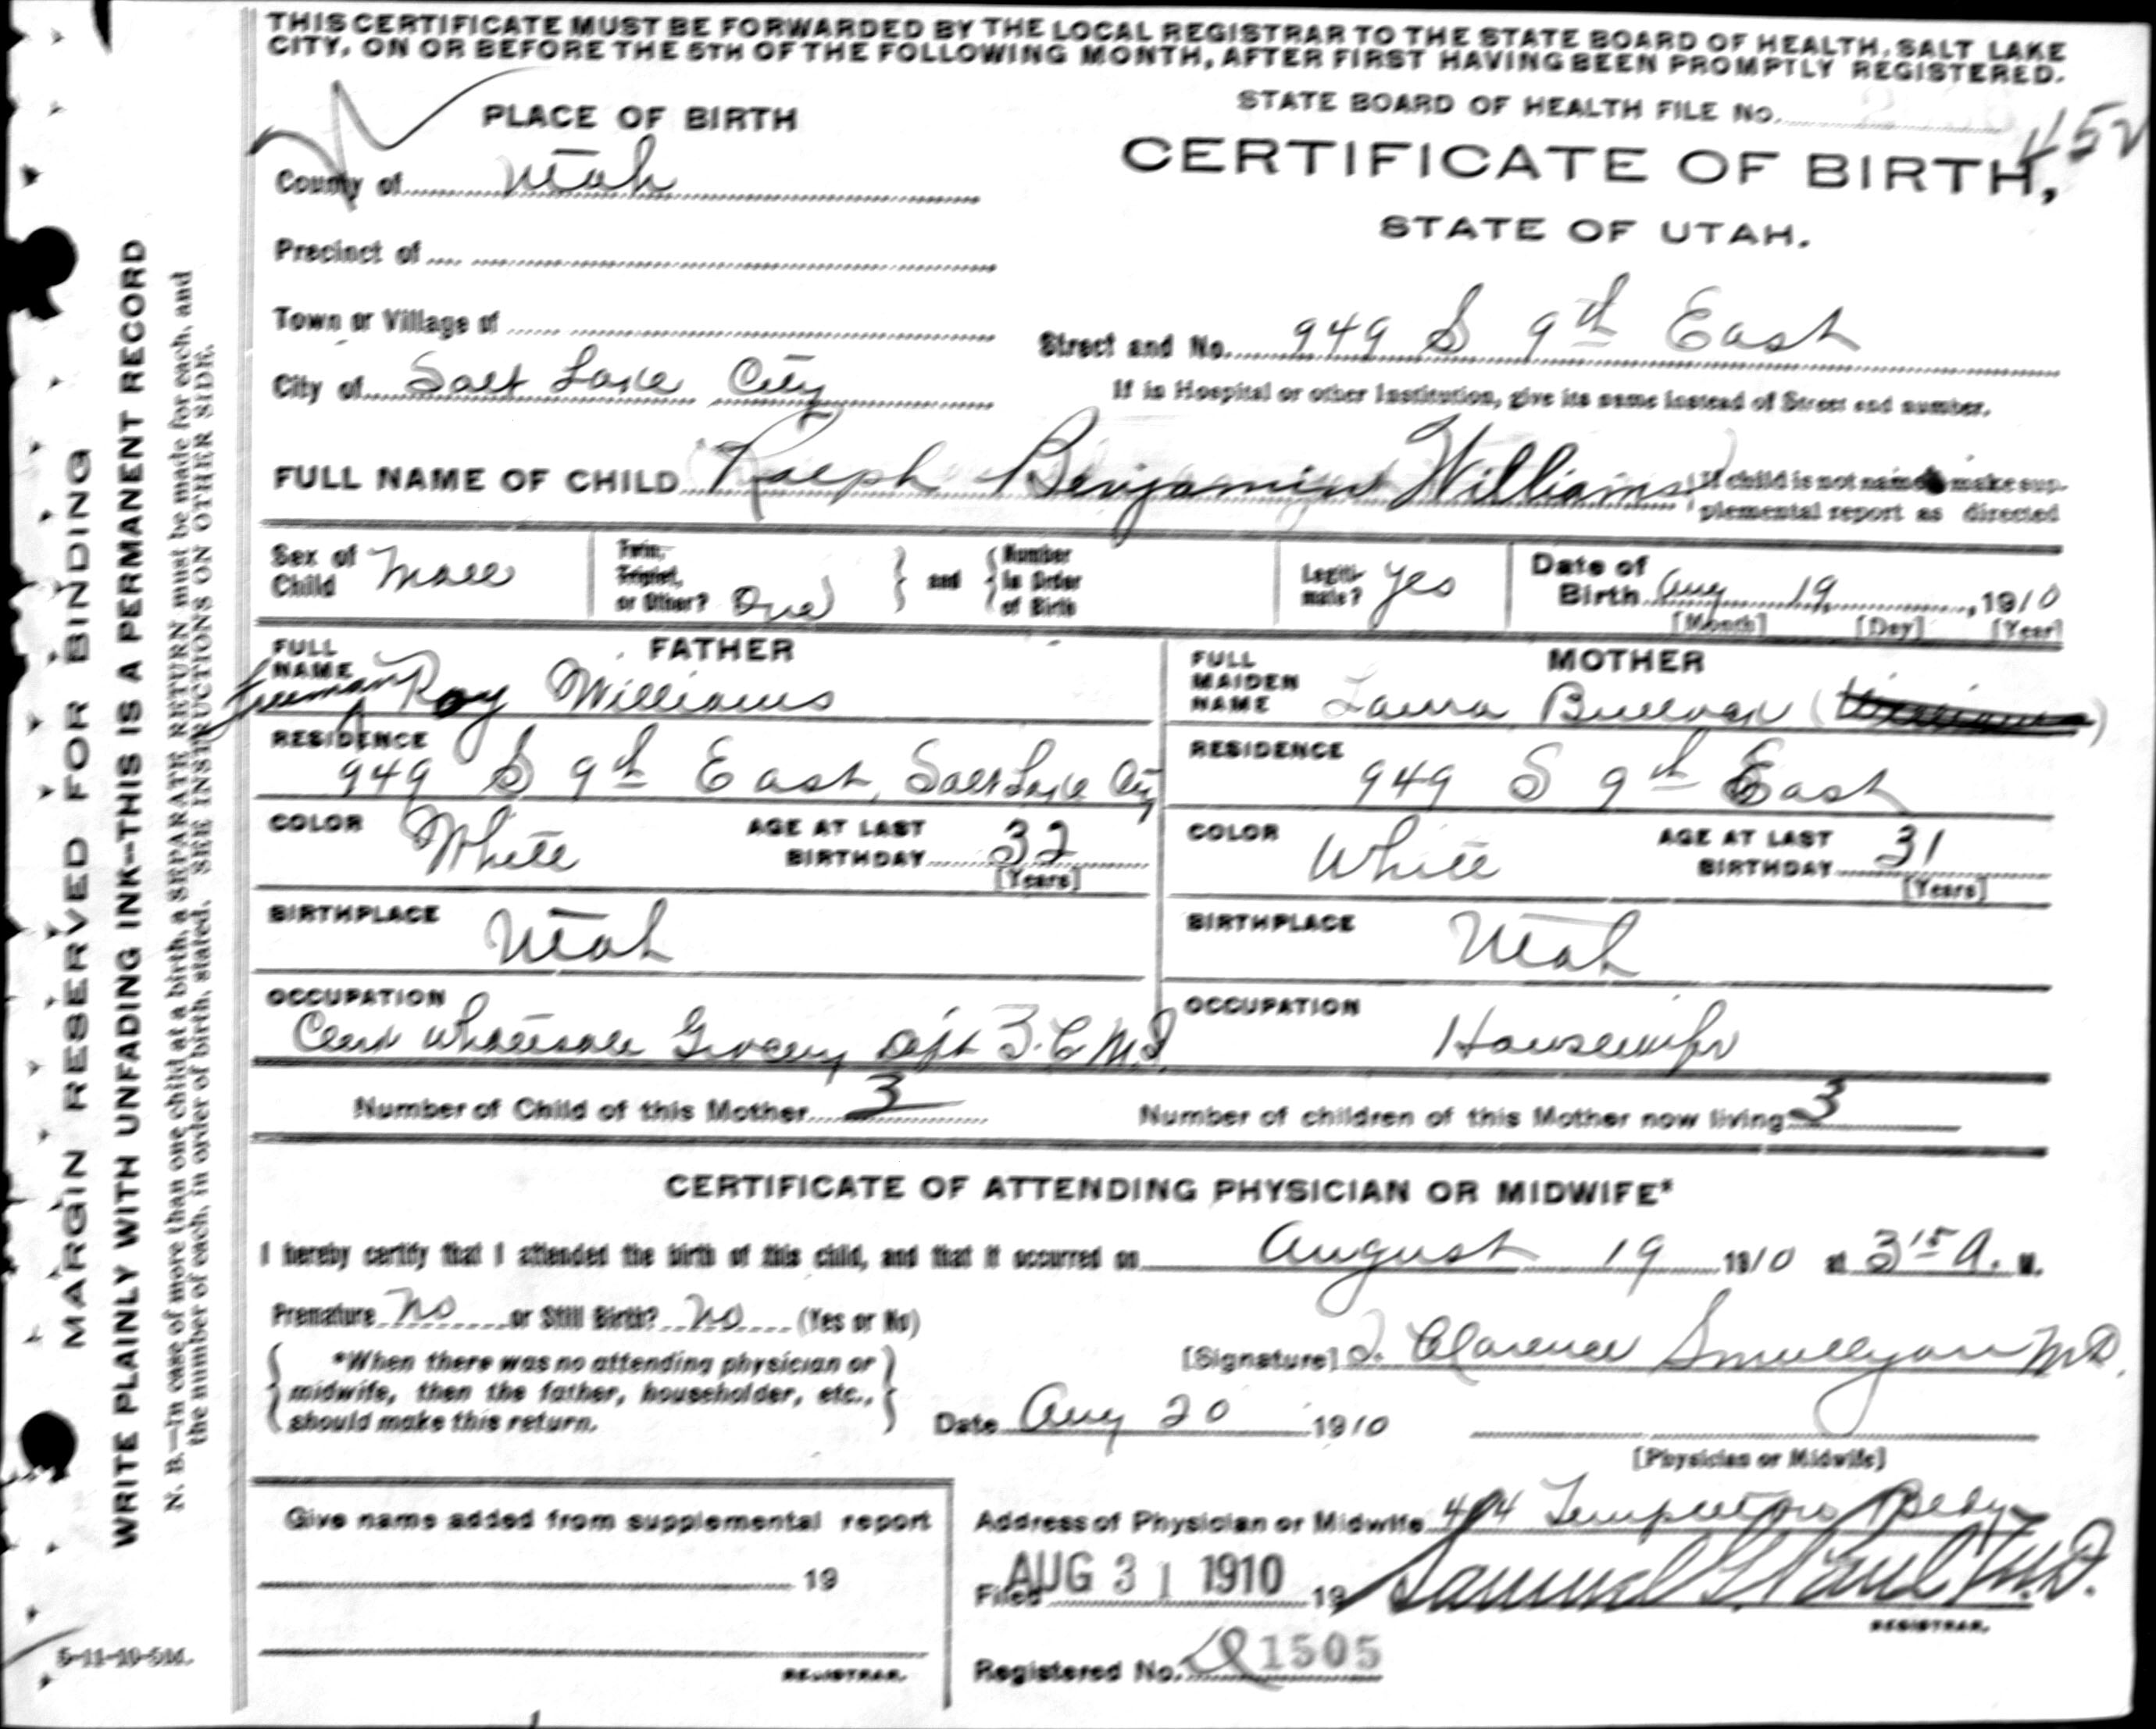 THIS CERTIFICATE MUST BE FORWARDED BY THE LOCAL REGISTRAR TO THE STATE BOARD OF HEALTH, SALT LAKE
CITY, ON OR BEFORE THE 5TH OF THE FOLLOWING MONTH, AFTER FIRST HAVING BEEN PROMPTLY REGISTERED.
STATE BOARD OF HEALTH FILE No.
PLACE OF BIRTH
CERTIFICATE OF BIRTH,
STATE OF UTAH.
County of Utah
Precinct of
Town or Village of
Street and No. 949 S 9th East
City of Salt Lake City
If in Hospital or other Institution, give its name instead of Street and number.
FULL NAME OF CHILD Ralph Benjamin Williams
If child is not named make sup-
plemental report as directed
Sex of Child Male
Twin, Triplet, or Other? One
and Number in Order of Birth
Legiti-mate? Yes
Date of Birth Aug 19, 1910
[Month] [Day] [Year]
FATHER
FULL NAME Freeman Roy Williams
RESIDENCE
949 S 9th East, Salt Lake City
COLOR White
AGE AT LAST BIRTHDAY 32
[Years]
BIRTHPLACE
Utah
OCCUPATION
Clerk Wholesale Grocery Dept Z.C.M.I.
MOTHER
FULL MAIDEN NAME Laura
RESIDENCE
949 S 9th East
COLOR White
AGE AT LAST BIRTHDAY 31
[Years]
BIRTHPLACE
Utah
OCCUPATION
Housewife
Number of Child of this Mother 3
Number of children of this Mother now living 3
CERTIFICATE OF ATTENDING PHYSICIAN OR MIDWIFE*
I hereby certify that I attended the birth of this child, and that it occurred on August 19 1910 at 3 15 A. M.
Premature No or Still Birth? No (Yes or No)
[Signature] J. Clarence Smullyan M.D.
*When there was no attending physician or
midwife, then the father, householder, etc.,
should make this return.
Date Aug 20 1910
[Physician or Midwife]
Give name added from supplemental report
19
REGISTRAR.
Address of Physician or Midwife 404 Templeton Bldg
Filed AUG 31 1910 19
Samuel G. Paul M.D.
REGISTRAR.
Registered No. 1505
MARGIN RESERVED FOR BINDING
WRITE PLAINLY WITH UNFADING INK—THIS IS A PERMANENT RECORD
N. B.—In case of more than one child at a birth, a SEPARATE RETURN must be made for each, and
the number of each, in order of birth, stated. SEE INSTRUCTIONS ON OTHER SIDE.
5-11-10-5M.